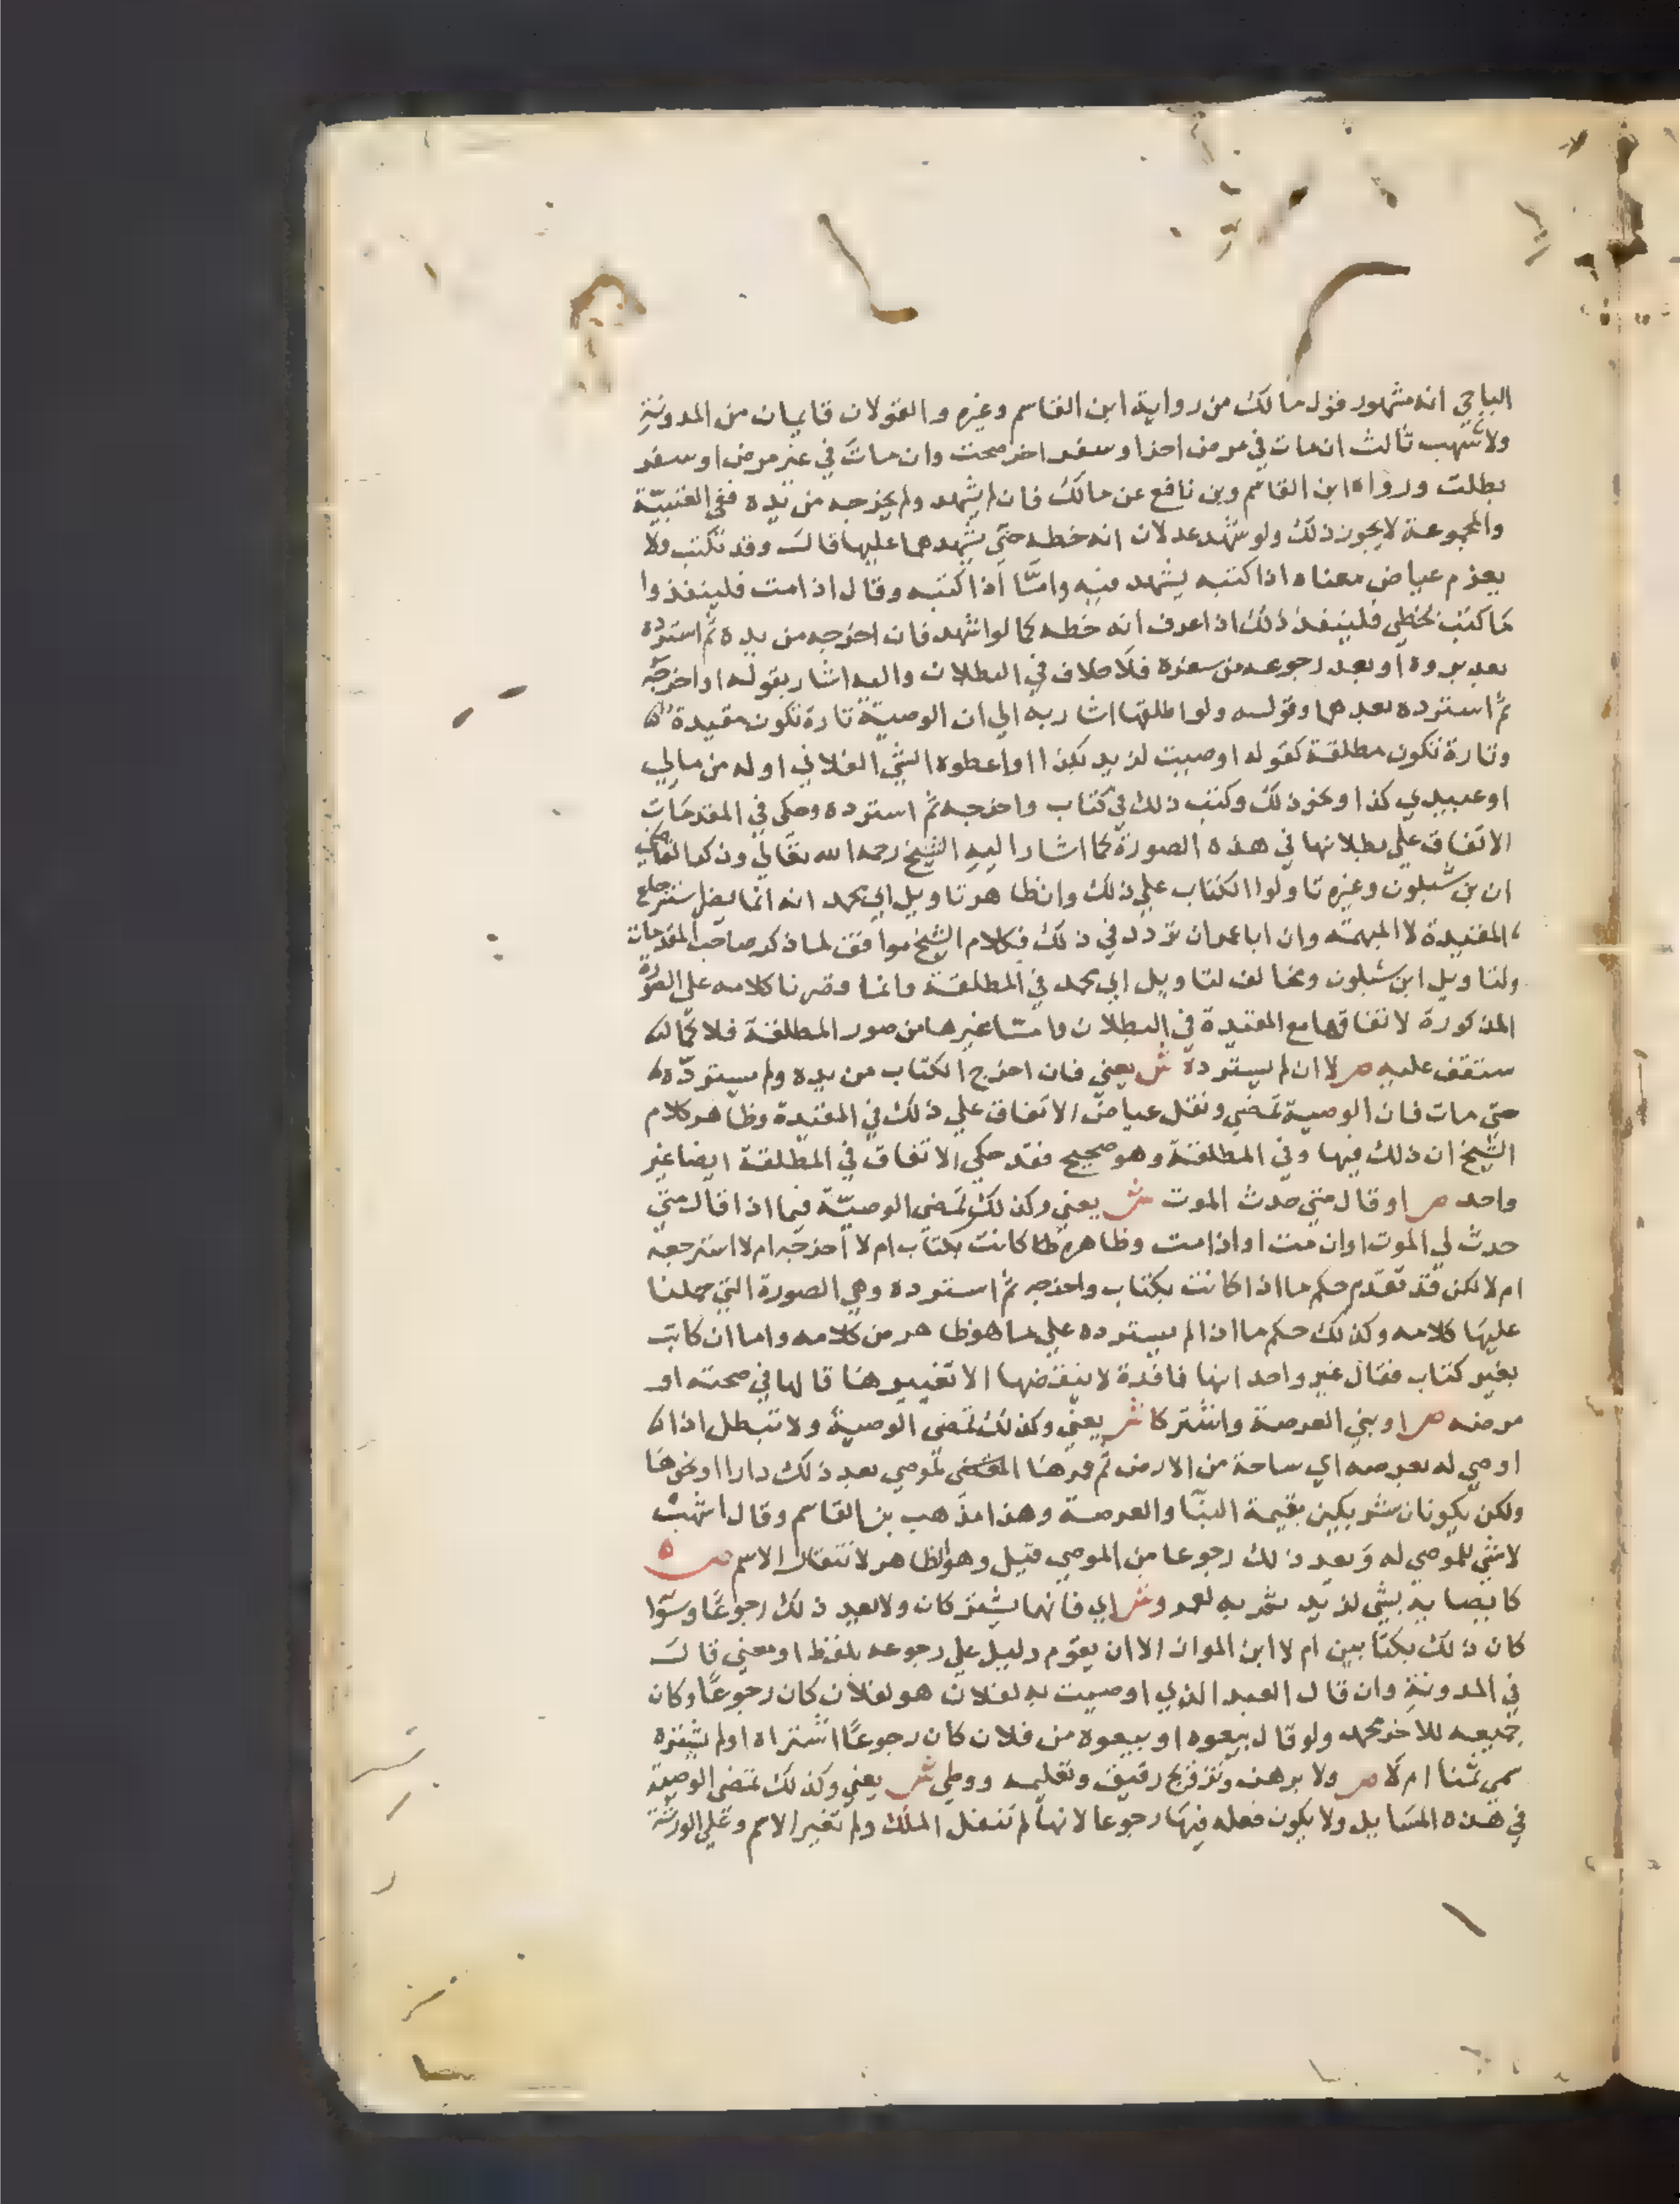 الباجي انه مشهور قول مالك من رواية ابن القاسم وغيره والقولان قايمان من المدونة
ولاشهب ثالث ان مات في مرض اخر او سفر اخر صحت وان مات في غير مرض او سفر
بطلت ورواه ابن القاسم وبن نافع عن مالك فان لم يشهد ولم يخرجه من يده ففي العتبيّة
والمجموعة لا يجوز ذلك ولو شهد عدلان انه خطه حتي يشهدهما عليها قال وقد تكتب ولا
يعزم عياض معناه اذا كتبه يشهد فيه وامّا اذا كتبه وقال اذا مت فلينفذوا
ما كتب بخطي فلينفذ ذلك اذا عرف انه خطه كما لو اشهد فان اخرجه من يده ثم استرده
بعد بروه او بعد رجوعه من سفره فلا خلاف في البطلان واليه اشار بقوله او اخرجه
ثم استرده بعدهما وقوله ولو اطلقها اشار به الي ان الوصيّة تارة تكون مقيدة
وتارة تكون مطلقة كقوله اوصيت لزيد بكذا او اعطوه الشي الفلاني او له من مالي
او عبيدي كذا او نحو ذلك وكتب ذلك في كتاب واخرجه ثم استرده وحكي في المقدمات
الاتفاق علي بطلانها في هذه الصورة كما اشار اليه الشيخ رحمه الله تعالي وذكر القاضي
ان بن شبلون وغيره تاولوا الكتاب علي ذلك وان ظاهر تاويل ابي محمد انه انما يضر استرجاع
المقيدة لا المبهمة وان ابا عمران تردد في ذلك فكلام الشيخ موافق لما ذكر صاحب المقدمات
ولتاويل ابن شبلون ومخالف لتاويل ابي محمد في المطلقة وانما قصرنا كلامه علي الصورة
المذكورة لاتفاقها مع المقيدة في البطلان وامّا غيرها من صور المطلقة فلا كما
ستقف عليه ص لا ان لم يسترده ش يعني فان اخرج الكتاب من يده ولم يستردّه
حتي مات فان الوصية تمضي ونقل عياض الاتفاق علي ذلك في المقيدة وظاهر كلام
الشيخ ان ذلك فيها وفي المطلقة وهو صحيح فقد حكي الاتفاق في المطلقة ايضا غير
واحد ص او قال متي حدث الموت ش يعني وكذلك تمضي الوصيّة فيما اذا قال متي
حدث لي الموت او ان مت او اذا مت وظاهره كانت بكتاب ام لا اخرجه ام لا استرجعه
ام لا لكن قد تقدم حكم ما اذا كانت بكتاب واخرجه ثم استرده وهي الصورة التي حملنا
عليها كلامه وكذلك حكم ما اذا لم يسترده علي ما هو ظاهر من كلامه واما ان كانت
بغير كتاب فقال غير واحد انها نافذة لا ينقضها الا تغييرها قالها في صحته او
مرضه ص او بني العرصة واشتركا ش يعني وكذلك تمضي الوصية ولا تبطل اذا
اوصي له بعرصه اي ساحة من الارض ثم الموصي بعد ذلك دارا او نحوها
ولكن يكونان شريكين بقيمة البنا والعرصة وهذا مذهب بن القاسم وقال اشهب
لا شي للموصي له ويعد ذلك رجوعا من الموصي قيل وهو الظاهر لانتقال الاسم ص
كايصايه بشي لزيد ثم به لعمرو ش اي فانهما يشتركان ولا يعد ذلك رجوعًا وسوا
كان ذلك بكتابين ام لا ابن المواز الا ان يقوم دليل علي رجوعه بلفظ او معني قال
في المدونة وان قال العبد الذي اوصيت به لفلان هو لفلان كان رجوعًا وكان
جميعه للاخر محمد ولو قال بيعوه او بيعوه من فلان كان رجوعًا اشتراه او لم يشتره
سمي ثمنا ام لا ص ولا برهن وتزويج رقيق وتعليمه ووطي ش يعني وكذلك تمضي الوصية
في هذه المسايل ولا يكون فعله فيها رجوعا لانها لم تنقل الملك ولم تغير الاسم وعلي الورثة